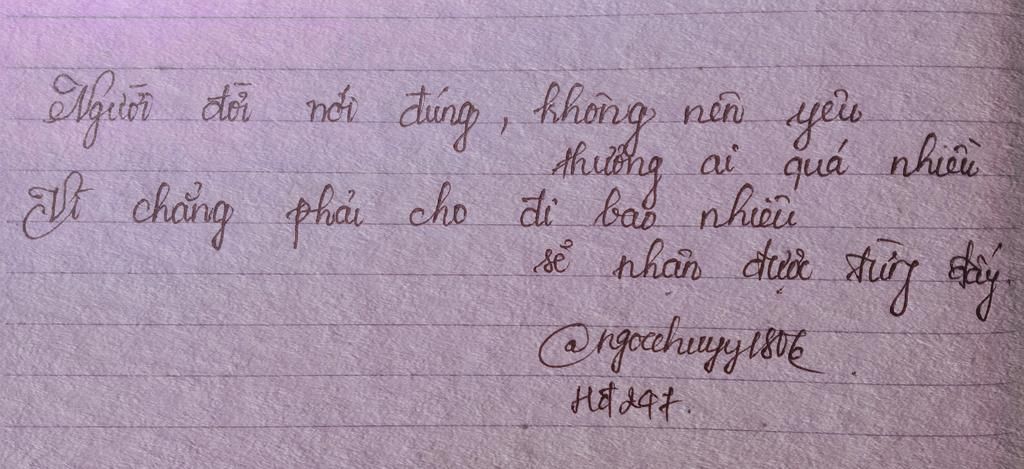 Người đời nói đúng, không nên yêu
thương ai quá nhiều
Vì chẳng phải cho đi bao nhiêu
sẽ nhận được từng đấy.
@ngocchuyy1806
HĐ247.